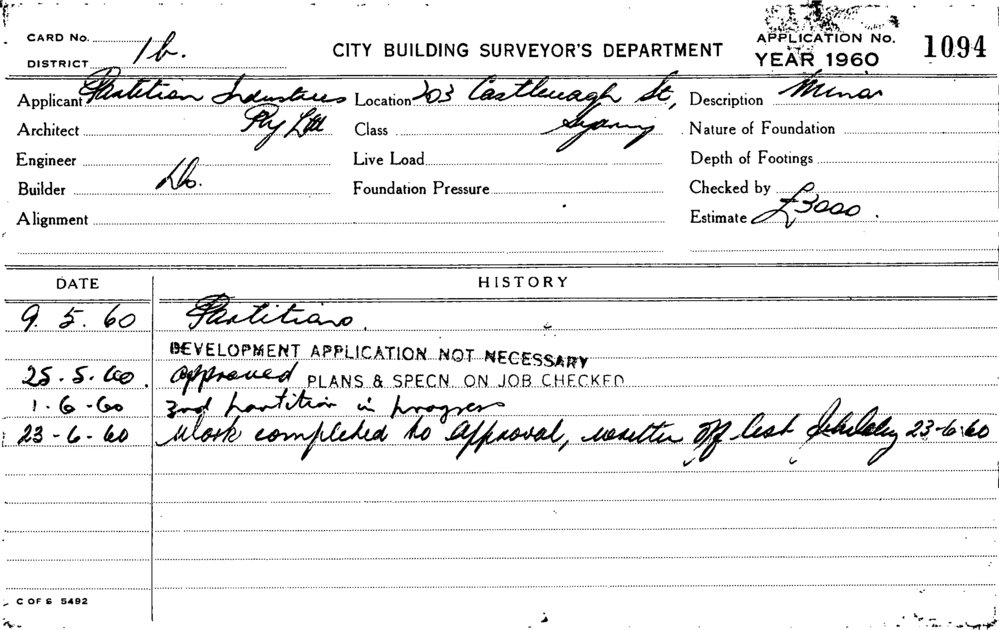 CARD No.
DISTRICT 1b.
CITY BUILDING SURVEYOR'S DEPARTMENT
APPLICATION No. 1094
YEAR 1960
Applicant Partition Industries Location 203 Castlereagh St, Description Minor
Architect Pty Ltd Class Sydney Nature of Foundation
Engineer Live Load Depth of Footings
Builder Do. Foundation Pressure Checked by
Alignment Estimate £3000.
DATE HISTORY
9. 5. 60 Partitions.
DEVELOPMENT APPLICATION NOT NECESSARY
25. 5. 60. approved PLANS & SPECN. ON JOB CHECKED
1-6-60 partition in progress
23-6-60 Work completed to approval, off list 23-6-60
C OF S 5492